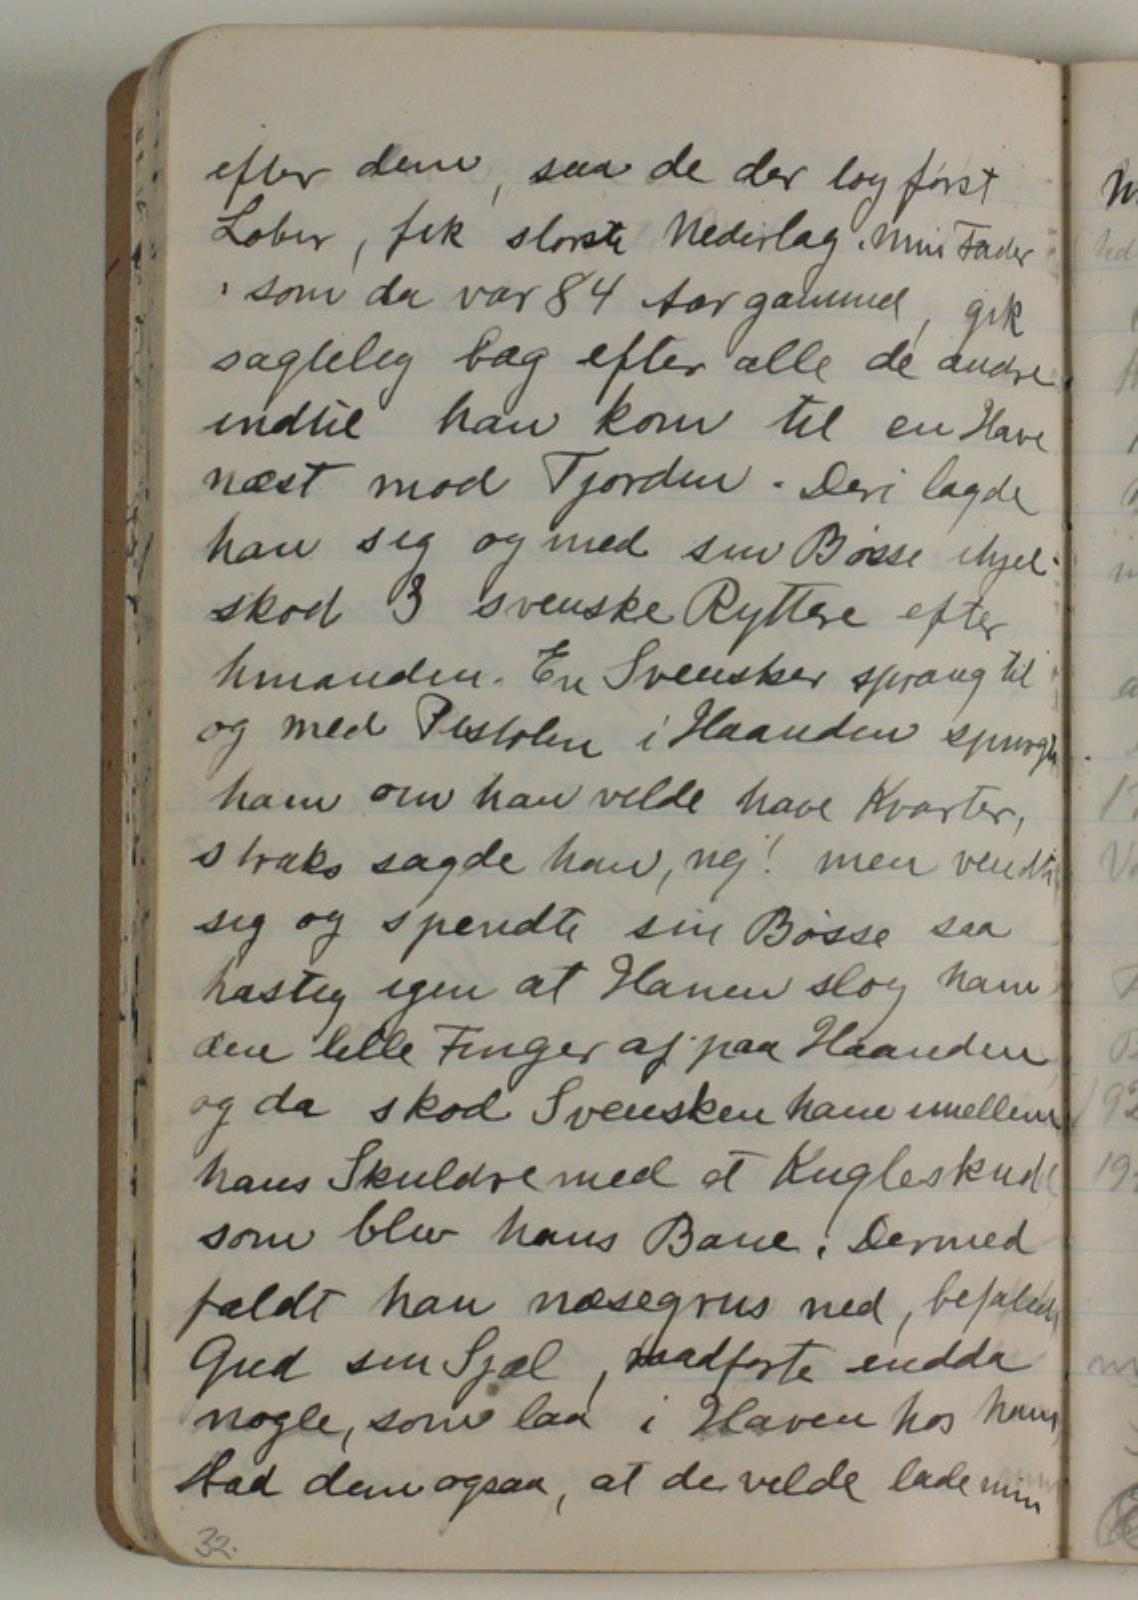 efter dem, saa de der tog først
Løber, fik største Nederlag. Min Fader
som da var 84 Aar gammel, gik
sagtelig bag efter alle de andre
indtil han kom til en Have
næst mod Fjorden. Deri lagde
han sig og med sin Bøsse ihjel-
skod 3 svenske Ryttere efter
hinanden. En Svensker sprang til
og med Pistolen i Haanden spurgte
ham om han vilde have Kvarter,
straks sagde han, nej! men vendte
sig og spendte sin Bøsse saa
hastig igen at Hanen slog ham
den lille Finger af paa Haanden,
og da skod Svensken ham imellem
hans Skuldre med et Kugleskud
som blev hans Bane. Dermed
faldt han næsegrus ned, befalede
Gud sin Sjæl, raadførte endda
nogle, som laa i Haven hos ham,
bad dem ogsaa, at de vilde lade min
32.